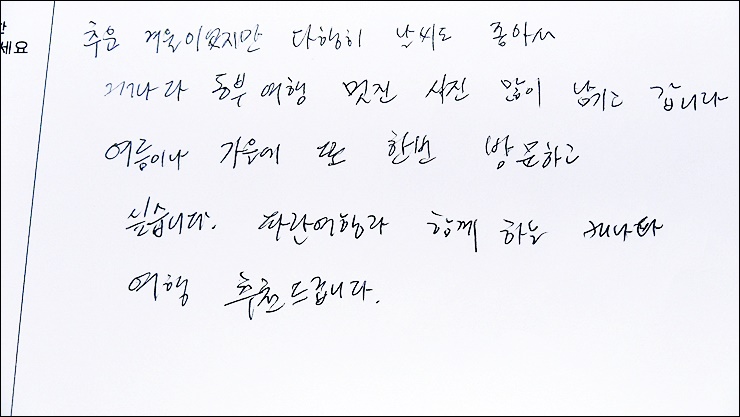 세요
추운 겨울이었지만 다행히 날씨도 좋아서
캐나다 동부 여행 멋진 사진 많이 남기고 갑니다
여름이나 가을에 또 한번 방문하고
싶습니다. 파란여행과 함께 하는 캐나다
여행 추천드립니다.